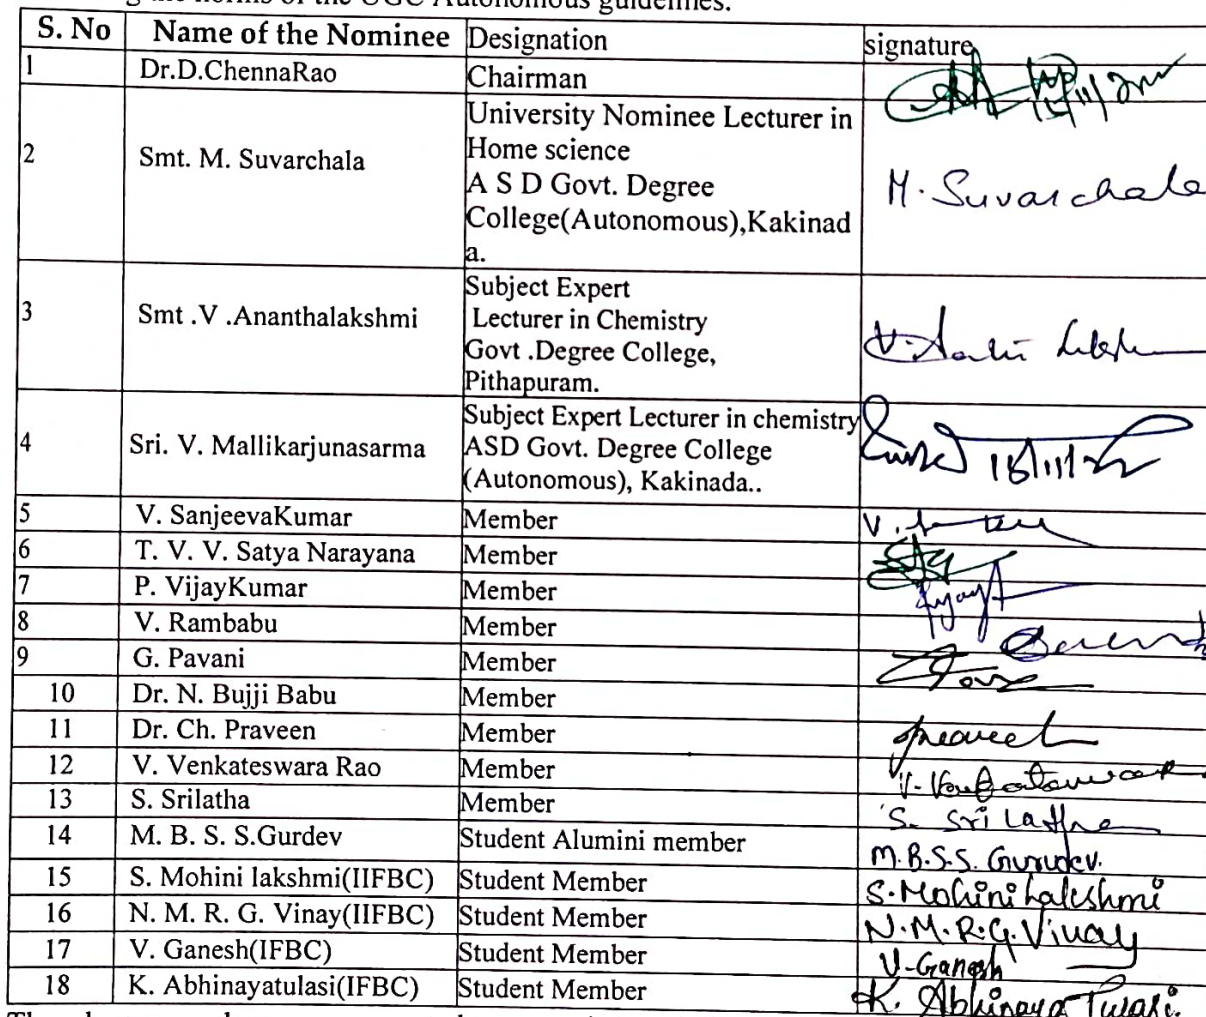 the norms of the UGC Autonomous guidelines.
S. No Name of the Nominee Designation signature
1 Dr.D.ChennaRao Chairman
2 Smt. M. Suvarchala University Nominee Lecturer in
Home science
A S D Govt. Degree
College(Autonomous),Kakinad
a.
M. Suvarchala
3 Smt .V .Ananthalakshmi Subject Expert
Lecturer in Chemistry
Govt .Degree College,
Pithapuram.
4 Sri. V. Mallikarjunasarma Subject Expert Lecturer in chemistry
ASD Govt. Degree College
(Autonomous), Kakinada..
5 V. SanjeevaKumar Member
6 T. V. V. Satya Narayana Member
7 P. VijayKumar Member
8 V. Rambabu Member
9 G. Pavani Member
10 Dr. N. Bujji Babu Member
11 Dr. Ch. Praveen Member
12 V. Venkateswara Rao Member
13 S. Srilatha Member S. Srilatha
14 M. B. S. S.Gurdev Student Alumini member M.B.S.S. Gurudev.
15 S. Mohini lakshmi(IIFBC) Student Member S. Mohini Lakshmi
16 N. M. R. G. Vinay(IIFBC) Student Member N.M.R.G. Vinay
17 V. Ganesh(IFBC) Student Member V-Ganesh
18 K. Abhinayatulasi(IFBC) Student Member K. Abhinaya Tulasi.